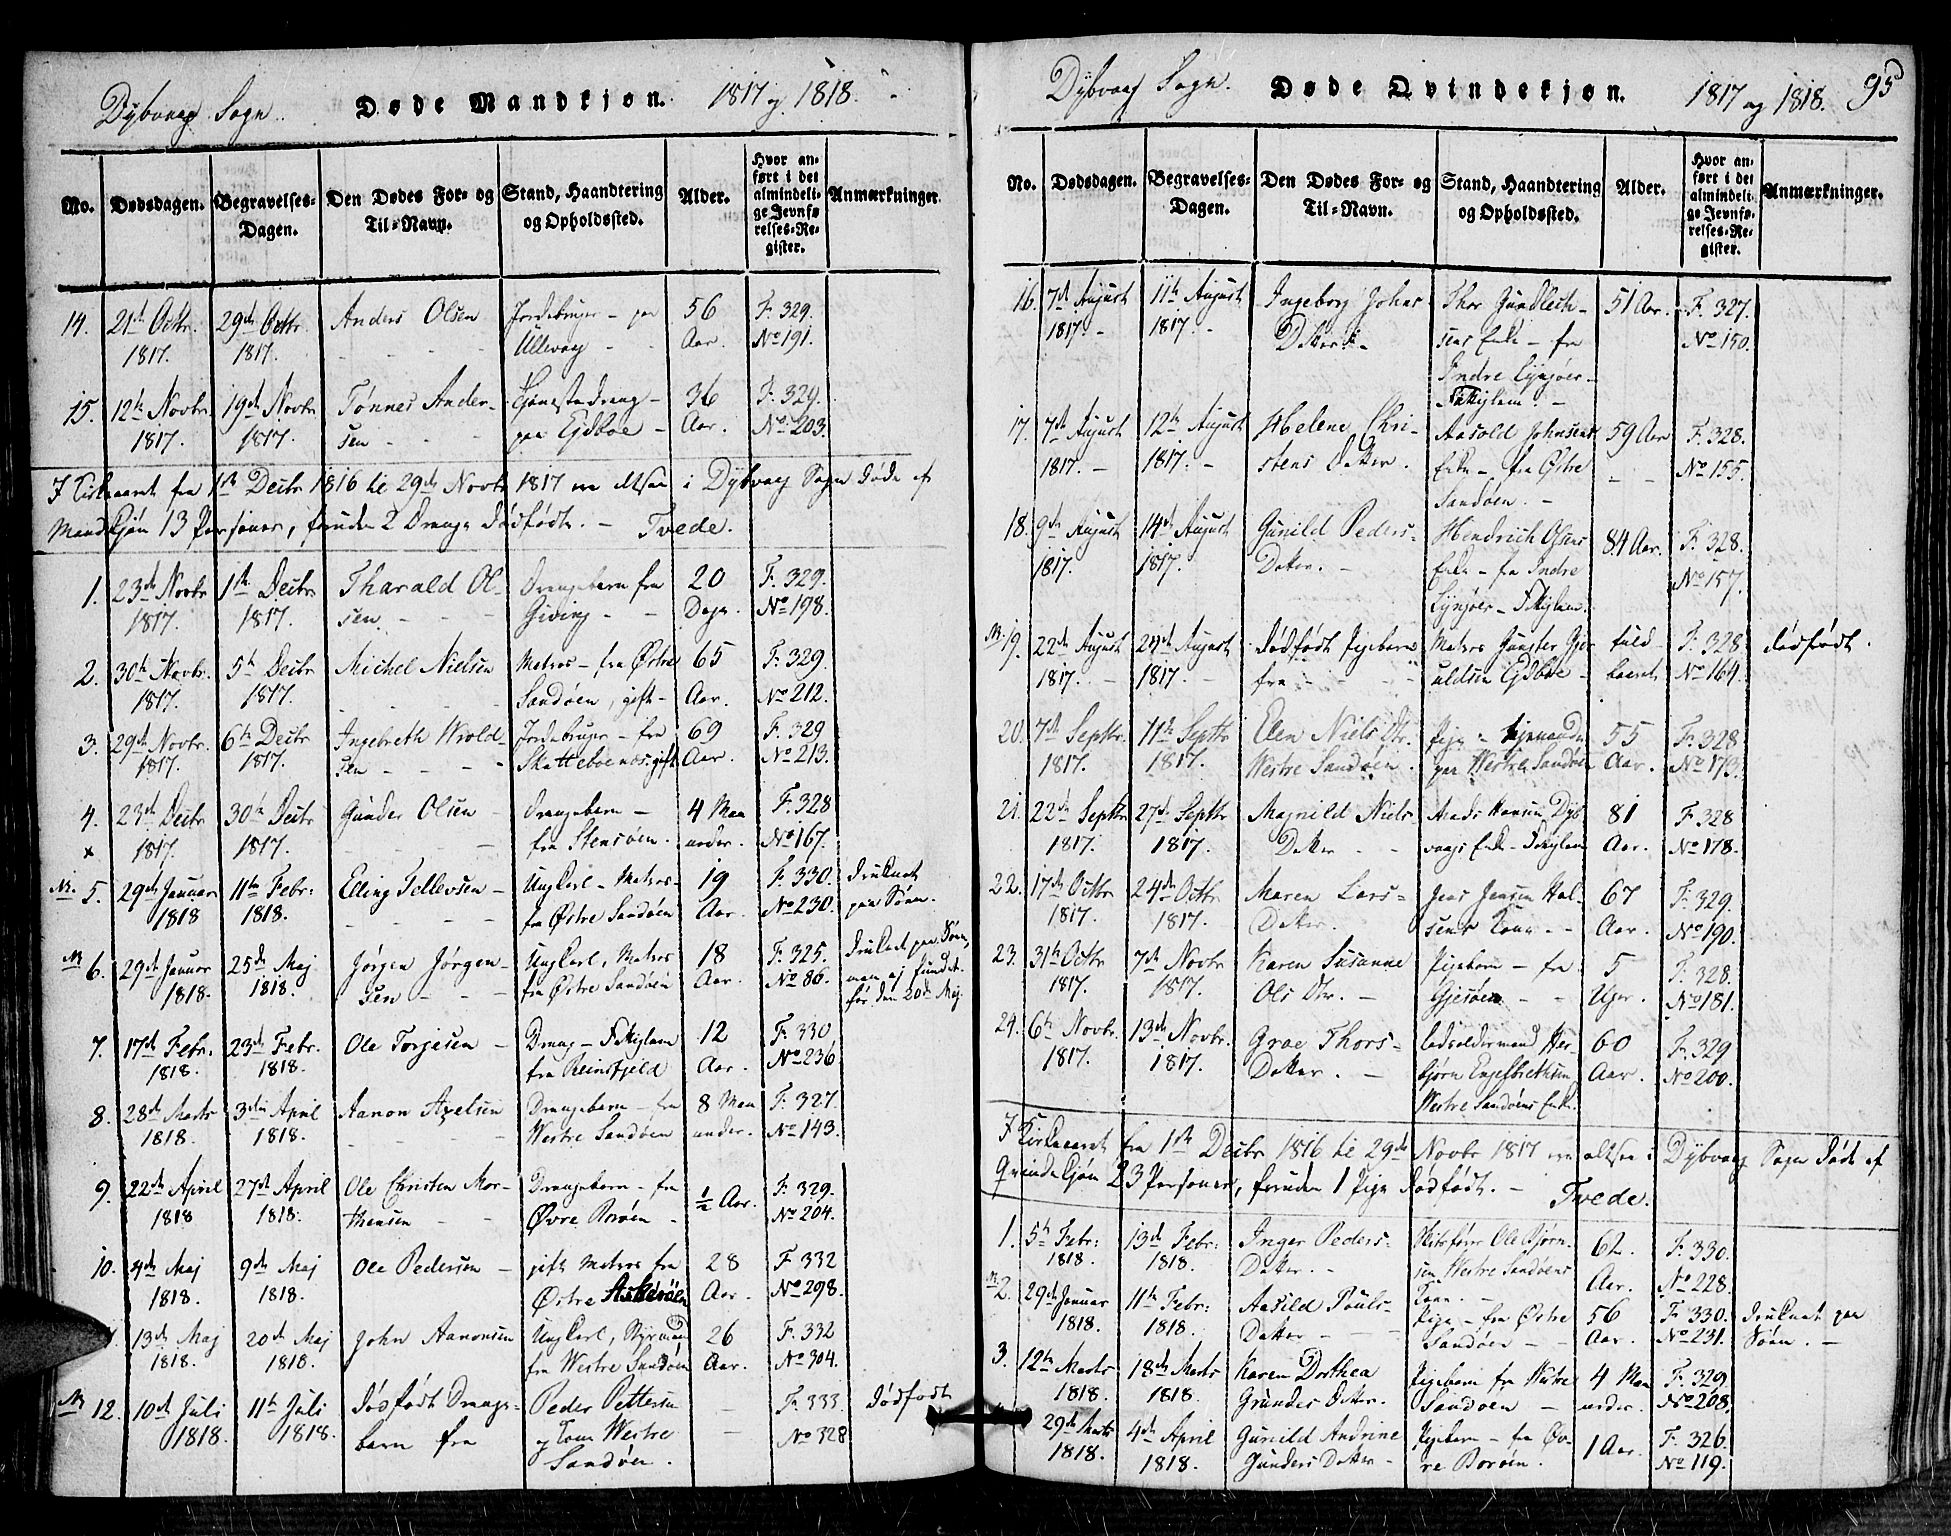 Dybvaag Sogn.
Døde Mandkjøn.
1817 og 1818.
No.
Dødsdagen.
Begravelses-
Dagen.
Den Dødes For- og
Til-Navn.
Stand, Haandtering
og Opholdssted.
Alder.
Hvor an-
ført i det
almindeli-
ge Jevnfø-
relses-Re-
gister.
Anmærkninger.
14. 21de Octbr. 29de Octbr. Anders Olsen Jordebruger - paa 56 F. 329.
1817. 1817. Ullevaag Aar. No 191.
15. 12te Novbr. 19de Novbr. Tønnes Ander- Tjenestedreng - 36 F. 329.
1817. 1817. sen paa Ejdboe Aar. No 203.
I Kirkeaaret fra 1ste Decbr 1816 til 29de Novbr 1817 ere altsaa i Dybvaag Sogn døde af
Mandkjøn 13 Personer, foruden 2 Drenge dødfødte. - Tvede.
1. 23de Novbr 1ste Decbr Tharald Ol- Drengebarn fra 20 F. 329.
1817. 1817. sen Giving Dage. No 198.
2. 30te Novbr. 5te Decbr Michel Nielsen Matros - fra Østre 65 F. 329.
1817. 1817. Sandøen, gift - Aar. No 212.
3. 29de Novbr. 6te Decbr Ingebreth Wrold- Jordebruger - fra 69 F. 329
1817. 1817. sen Skatteboenes. gift Aar. No 213.
4. 23de Decbr 30te Decbr Gunder Olsen Drengebarn - 4 Maa F. 328
x 1817. 1817. fra Stensøen. neder. No 167.
5. 29de Januar 11te Febr: Elling Tellevsen - Ungkarl - Matros - 19 F. 330. druknet
1818 1818. fra Østre Sandøen Aar. No 230. paa Søen.
6. 29de Januar 25de Maj Jørgen Jørgen- Ungkarl, Matros 18 F. 325. druknet paa Søen,
1818. 1818. sen fra Østre Sandøen Aar. No 86. men ej fundet
før den 20de Maj.
7. 17de Febr: 23de Febr. Ole Torjesen - Dreng - Fattiglem 12 F. 330
1818. 1818. fra Reinsfjeld Aar. No 236
8. 28de Marts 3die April Aanon Axelsen Drengebarn - fra 8 Maa F. 327.
1818. 1818. Westre Sandøen neder. No 143.
9. 22de April 27de April Ole Christen Mor- Drengebarn - fra ½ Aar. F. 329.
1818 1818. thensen Øvre Borøen No 204.
10. 4de Maj 9de Maj Ole Pedersen - gift Matros fra 28 F 332
1818. 1818. Østre Aar. No 298.
13de Maj 20de Maj John Aanonsen Ungkarl, Styrmand 26 F. 332
1818. 1818. fra Westre Sandøen Aar. No 304.
12. 10de Juli 11te Juli dødfødt Drenge- Peder Pettersen - F. 333. dødfødt
1818. 1818. barn fra og Kone Westre No 328
Sandøen.
Dybvaag Sogn.
Døde Qvindekjøn.
1817 og 1818.
95
No.
Dødsdagen.
Begravelses-
Dagen.
Den Dødes For- og
Til-Navn.
Stand, Haandtering
og Opholdssted.
Alder.
Hvor an-
ført i det
almindeli-
ge Jevnfø-
relses-Re-
gister.
Anmærkninger.
16. 7de August 11te August Ingeborg Johns Thor Gundlech- 51 Aar. F. 327.
1817. 1817. Datter. sens Enke - fra No 150.
Indre Lyngøer -
Fattiglem. -
17. 7de August 12te August Helene Chri- Aasold Johnsens 59 Aar F. 328.
1817. 1817. stens Datter. Enke - fra Østre No 155.
Sandøen. -
18. 9de August 14de August Gunild Peders- Hendrich Olsens 84 Aar. F. 328.
1817. 1817. Datter. Enke - fra Indre No 157.
Lyngøer - Fattiglem.
19. 22de August 24de August dødfødt Pigebarn Matros Gunster Gjer fuld- F. 328 dødfødt.
1817. 1817. fra uldsen Ejdboe baaret No 164.
20. 7de Septbr. 11te Septbr Elen Niels Dtr. Pige - paa 55 F. 328
1817. 1817. Westre Sandøen. Westre Sandøen Aar. No 173.
21. 22de Septbr 27de Septbr Magnild Niels Mads Hansen Dyb 81 F. 328
1817. 1817. Datter vaags Enke - Fattiglem Aar. No 178.
22. 17de Octbr 24de Octbr. Maren Lars- Jens Jensen Hol- 67 F. 329.
1817. 1817. Datter. sens Kone Aar. No 190.
23. 31te Octbr 7de Novbr Karen Susanne Pigebarn - fra 5 F. 328.
1817. 1817. Ols Dtr. Gjesøen Uger. No 181.
24. 6te Novbr. 13de Novbr. Groe Thors- Ledsoldermand Her- 60 F. 329
1817. 1817. Datter. bjørn Engelbrethsen Aar. No 200.
Westre Sandøens Enke.
I Kirkeaaret fra 1ste Decbr 1816 til 29de Novbr 1817 ere altsaa i Dybvaag Sogn døde af
Qvindekjøn 23 Personer, foruden 1 Pige dødfødt. - Tvede.
1. 5te Febr: 13de Febr: Inger Peders- Ole Bjørn- 62. F. 330.
1818. 1818. Datter. sen Westre Sandøens Aar. No 228.
Kone. -
2. 29de Januar 11te Febr: Aasild Pouls- Pige - fra Østre 56 F. 330. druknet paa
1818. 1818. Datter Sandøen Aar. No 231. Søen. -
3. 12te Marts 18de Marts Karen Dorthea Pigebarn fra Westre 4 Maa F. 329
1818. 1818. Gunders Datter. Sandøen neder. No 208.
29de Marts 4de April Gunild Andrine Pigebarn - fra Øv- 1 Aar. F. 326.
1818. 1818. Gunders Datter re Borøen. No 119.